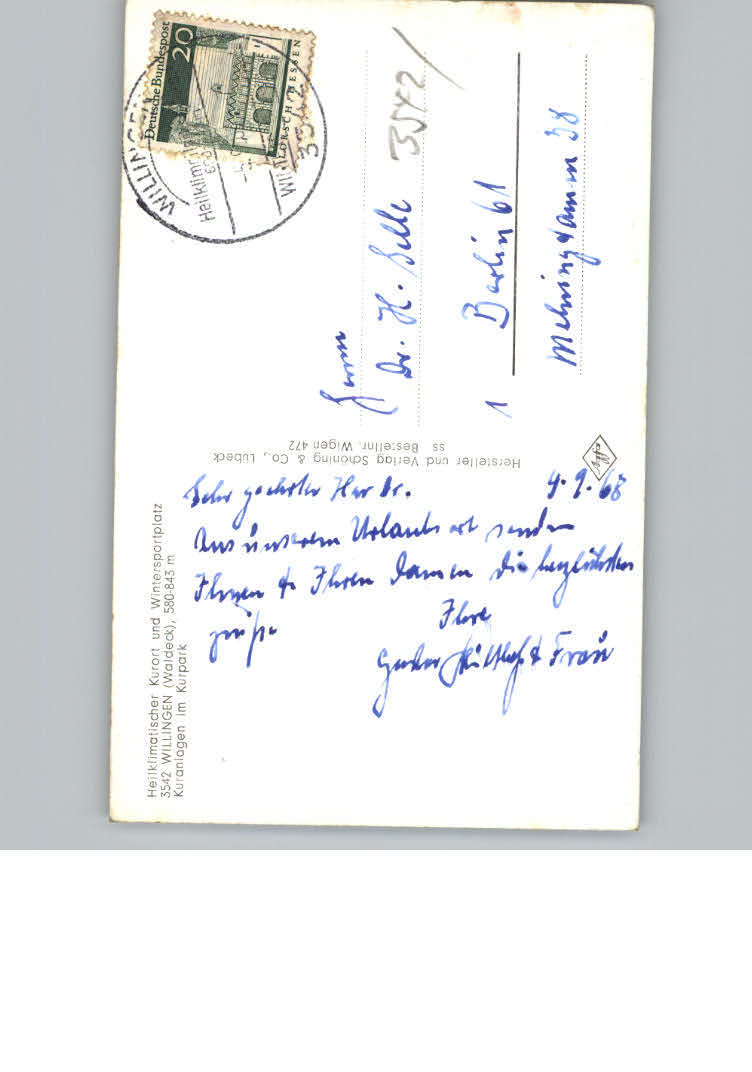 Deutsche Bundespost
20
LORSCH / HESSEN
WILLINGEN
Heilklimatischer
3542
3542
Herrn
Dr. H. Selle
1 Berlin 61
Mehringdamm 38
Hersteller und Verlag Schöning & Co., Lübeck
ss Bestellnr. Wigen 472
Heilklimatischer Kurort und Wintersportplatz
3542 WILLINGEN (Waldeck), 580-843 m
Kuranlagen im Kurpark
4.9.68
Sehr geehrter Herr Dr.
Aus unserem Urlaubsort senden
Ihnen & Ihren Damen die herzlichsten
Grüße
Ihre
& Frau